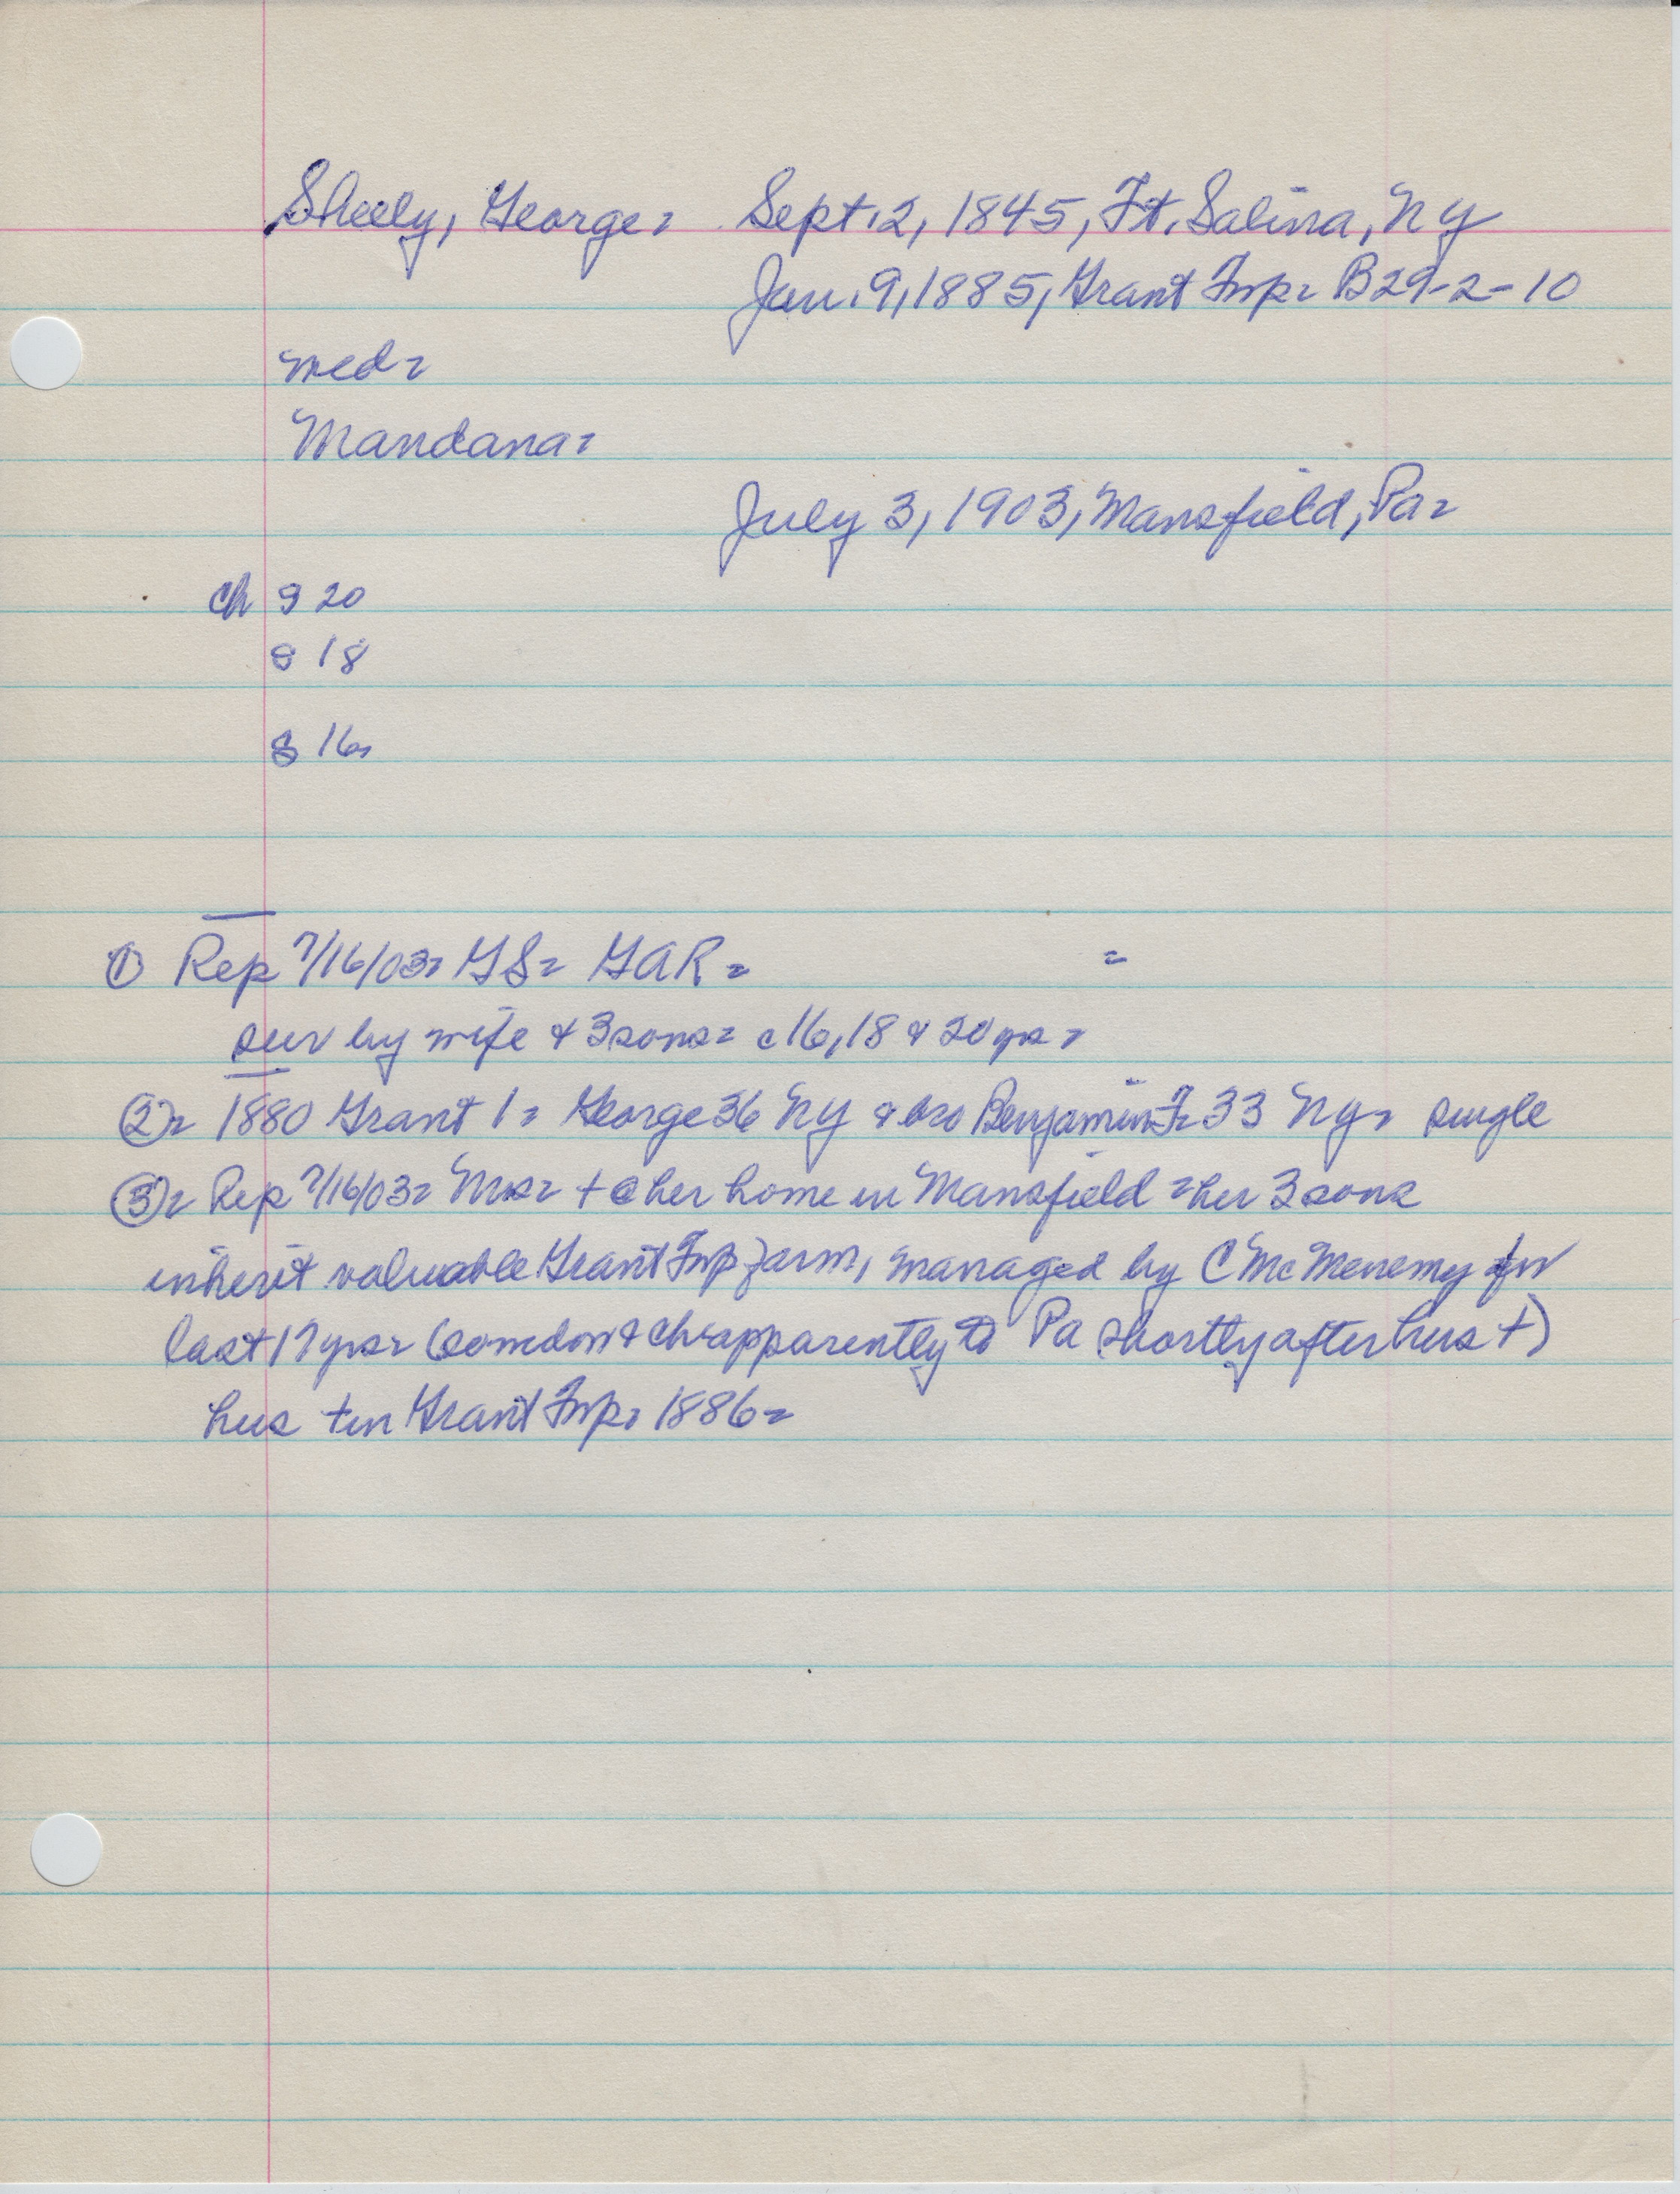 Sheely, George= Sept. 2, 1845, Ft. Salina, NY
Jan. 9, 1885, Grant Twp= B29-2-10
med=
Mandana=
July 3, 1903, Mansfield, Pa=
ch s 20
s 18
s 16
① Rep 7/16/03= GS= GAR= =
sur by wife & 3 sons= c16, 18 & 20 yrs=
②= 1880 Grant 1= George 36 NY & bro Benjamin F= 33 NY= single
③= Rep 7/16/03= Mrs= + @ her home in Mansfield = her 3 sons
inherit valuable Grant Twp farm, managed by C McMenemy for
last 17 yrs= ( & ch= apparently to Pa shortly after hus +)
hus + in Grant Twp= 1886=